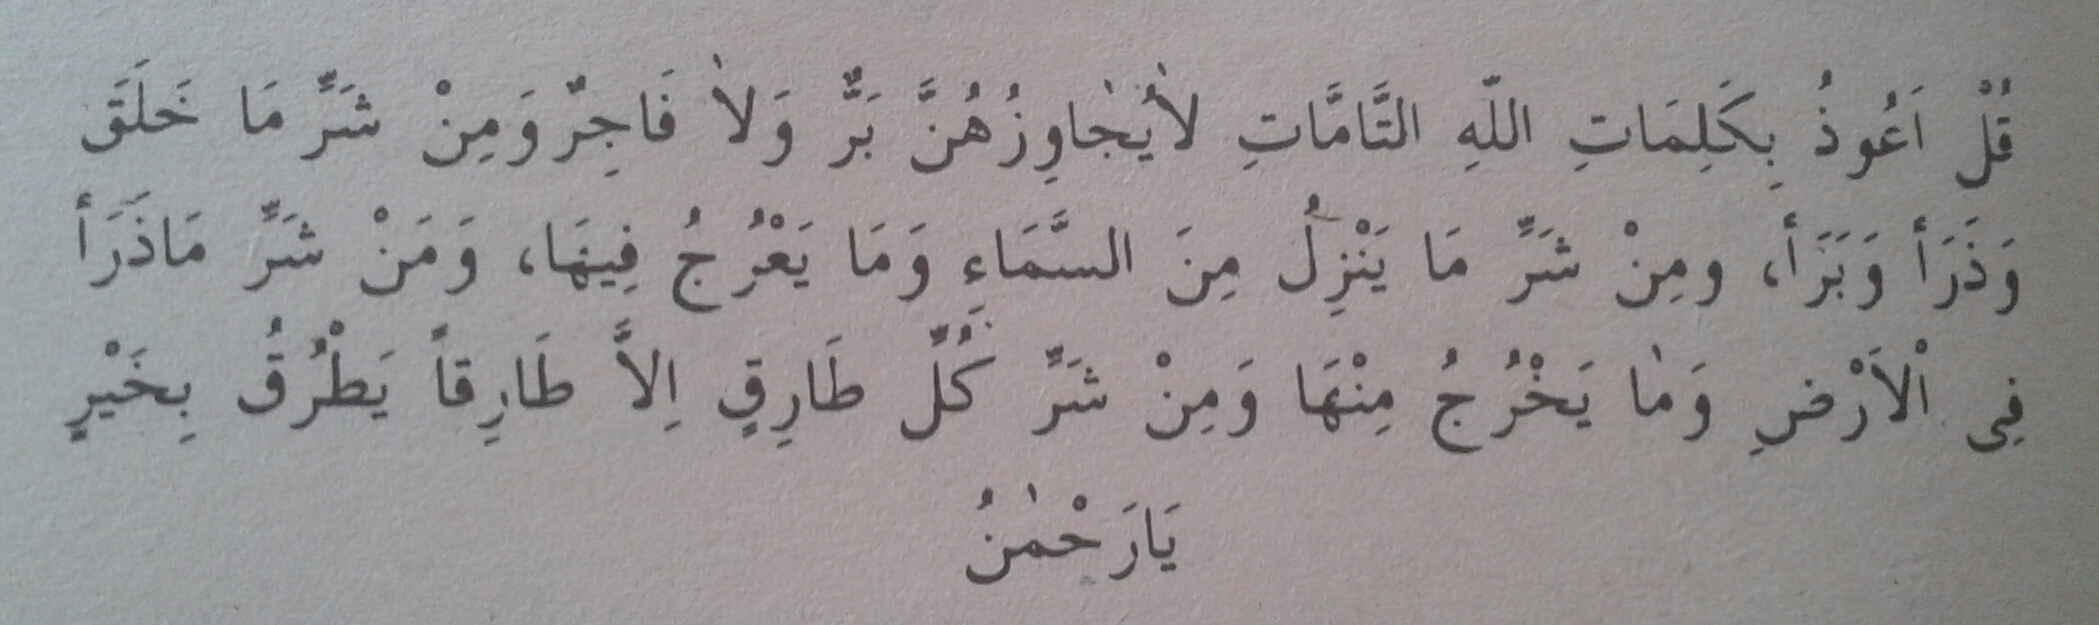 قُلْ اَعُوذُ بِكَلِمَاتِ اللّهِ التَّامَّاتِ لاٰيُجٰاوِزُهُنَّ بَرٌّ وَلاٰ فَاجِرٌ وَمِنْ شَرِّ مَا خَلَقَ
وَذَرَأَ وَبَرَأَ، ومِنْ شَرِّ مَا يَنْزِلُ مِنَ السَّمَاءِ وَمَا يَعْرُجُ فِيهَا، وَمَنْ شَرِّ مَاذَرَأَ
فِى اْلاَرْضِ وَمٰا يَخْرُجُ مِنْهَا وَمِنْ شَرِّ كُلِّ طَارِقٍ اِلاَّ طَارِقاً يَطْرُقُ بِخَيْرٍ
يَارَحْمٰنُ